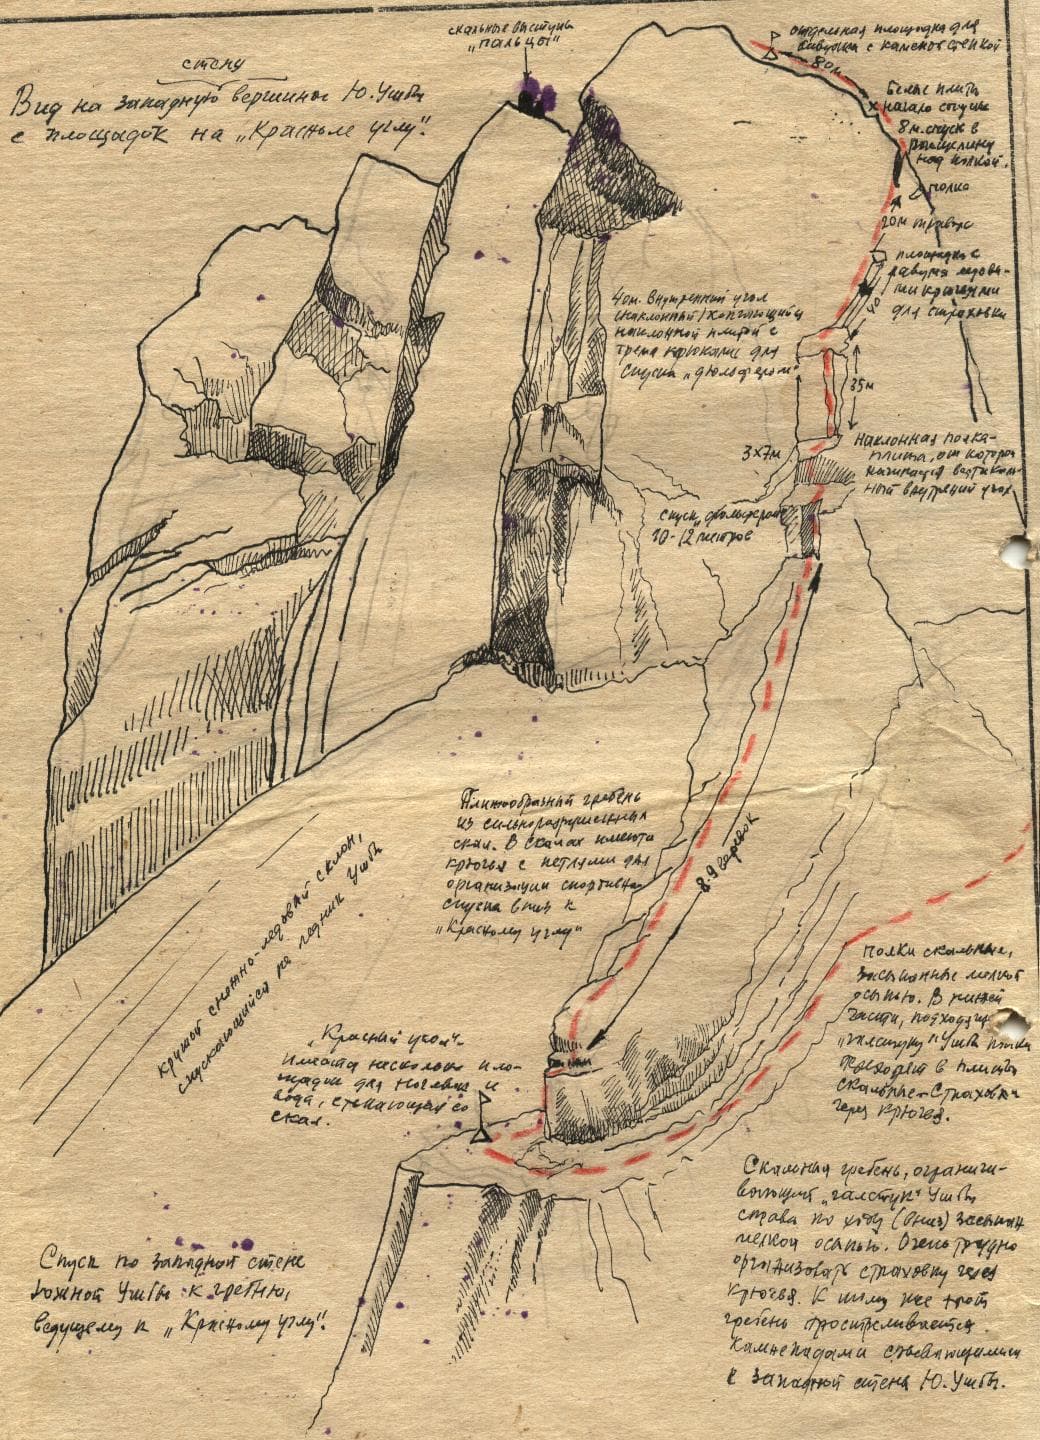 стену
Вид на западную вершины Ю. Ушбы
с площадок на „Красном углу“.
скальные выступы
„пальцы“
отдельная площадка для
бивуака с каменой стенкой
80м
Белые плиты
начало спуска
8 м. спуск в
расщелину
над полкой.
полка
20м траверс
площадка с
двумя ледовы-
ми крючьями
для страховки
40
40м. Внутренний угол
наклонный
наклонной плитой с
тремя крюками для
спуска „дюльфером“
35м
3х7м
Наклонная полка-
плита, от которой
начинается вертикаль-
ный внутрений угол
спуск „дюльфером“
10-12 метров
Плитообразный гребень
из сильноразрушенных
скал. В скалах имеются
крючья с петлями для
организации спортивного
спуска вниз к
„Красному углу“
8-9 веревок
крутой снежно-ледовый склон,
спускающийся на ледник Ушбы
„Красный угол“-
имеются несколько пло-
щадок для ночевки и
вода, стекающая со
скал.
полки скальные,
засыпанные мелкой
осыпью. В нижней
части, подходящей
„галстуку“ Ушбы полки
переходят в плиты
скальные - Страховка
через крючья.
Скальный гребень, ограничи-
вающий „галстук“ Ушбы
справа по ходу (вниз) засыпан
мелкой осыпью. Очень трудно
организовать страховку через
крючья. К тому же этот
гребень простреливается
камнепадами
с западной стены Ю. Ушбы.
Спуск по западной стене
Южной Ушбы к гребню,
ведущему к „Красному углу“.